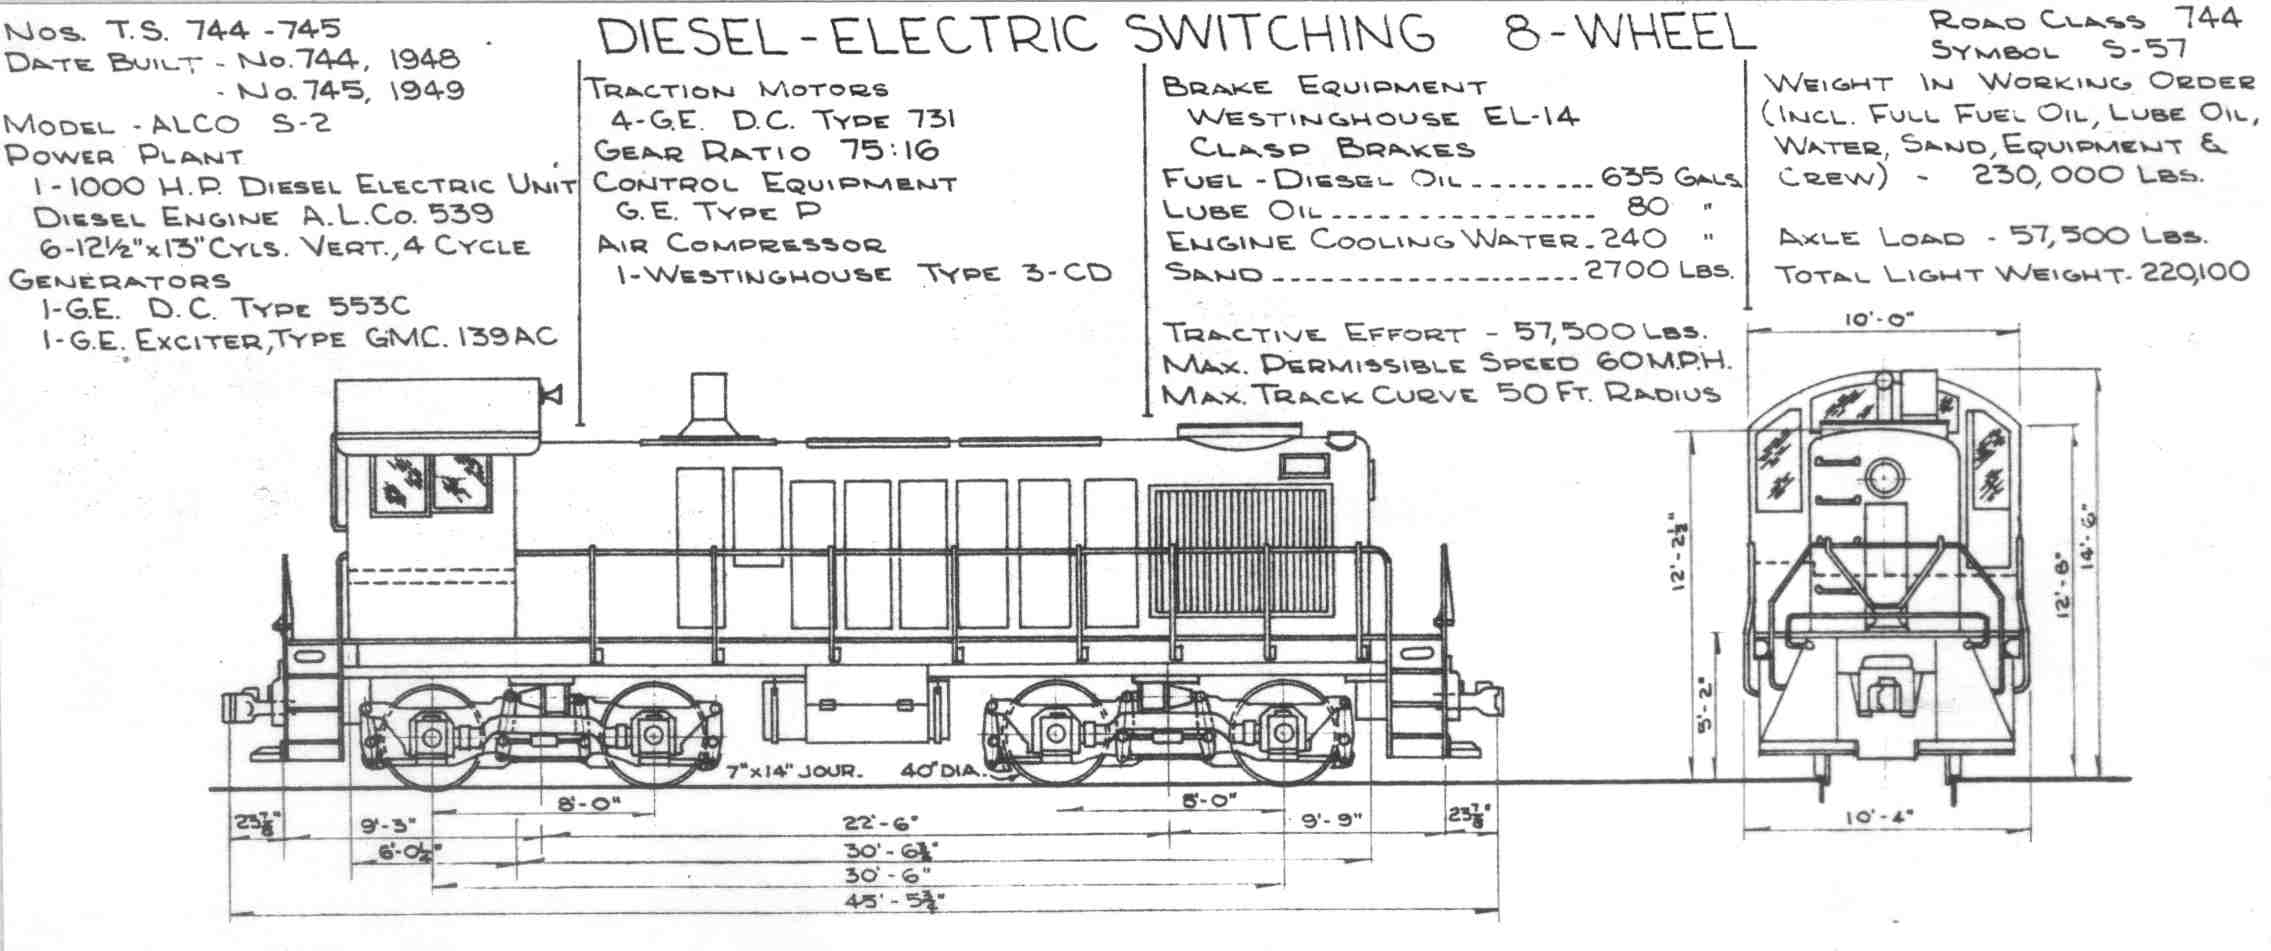 DIESEL-ELECTRIC SWITCHING 8-WHEEL
NOS. T.S. 744-745
DATE BUILT - NO.744, 1948
- NO.745, 1949
MODEL - ALCO S-2
POWER PLANT
1-1000 H.P. DIESEL ELECTRIC UNIT
DIESEL ENGINE A.L.CO. 539
6-12½"x13" CYLS. VERT., 4 CYCLE
GENERATORS
1-G.E. D.C. TYPE 553C
1-G.E. EXCITER, TYPE GMC. 139AC
TRACTION MOTORS
4-G.E. D.C. TYPE 731
GEAR RATIO 75:16
CONTROL EQUIPMENT
G.E. TYPE P
AIR COMPRESSOR
1-WESTINGHOUSE TYPE 3-CD
BRAKE EQUIPMENT
WESTINGHOUSE EL-14
CLASP BRAKES
FUEL - DIESEL OIL........ 635 GALS.
LUBE OIL................ 80 "
ENGINE COOLING WATER. 240 "
SAND................... 2700 LBS.
TRACTIVE EFFORT - 57,500 LBS.
MAX. PERMISSIBLE SPEED 60 M.P.H.
MAX. TRACK CURVE 50 FT. RADIUS
ROAD CLASS 744
SYMBOL S-57
WEIGHT IN WORKING ORDER
(INCL. FULL FUEL OIL, LUBE OIL,
WATER, SAND, EQUIPMENT &
CREW) - 230,000 LBS.
AXLE LOAD - 57,500 LBS.
TOTAL LIGHT WEIGHT - 220,100
10'-0"
12'-2½"
5'-2"
12'-8"
14'-6"
10'-4"
7"x14" JOUR.
40" DIA.
8'-0"
8'-0"
23⅞"
9'-3"
22'-6"
9'-9"
23⅞"
6'-0¼"
30'-6"
45'-5¾"